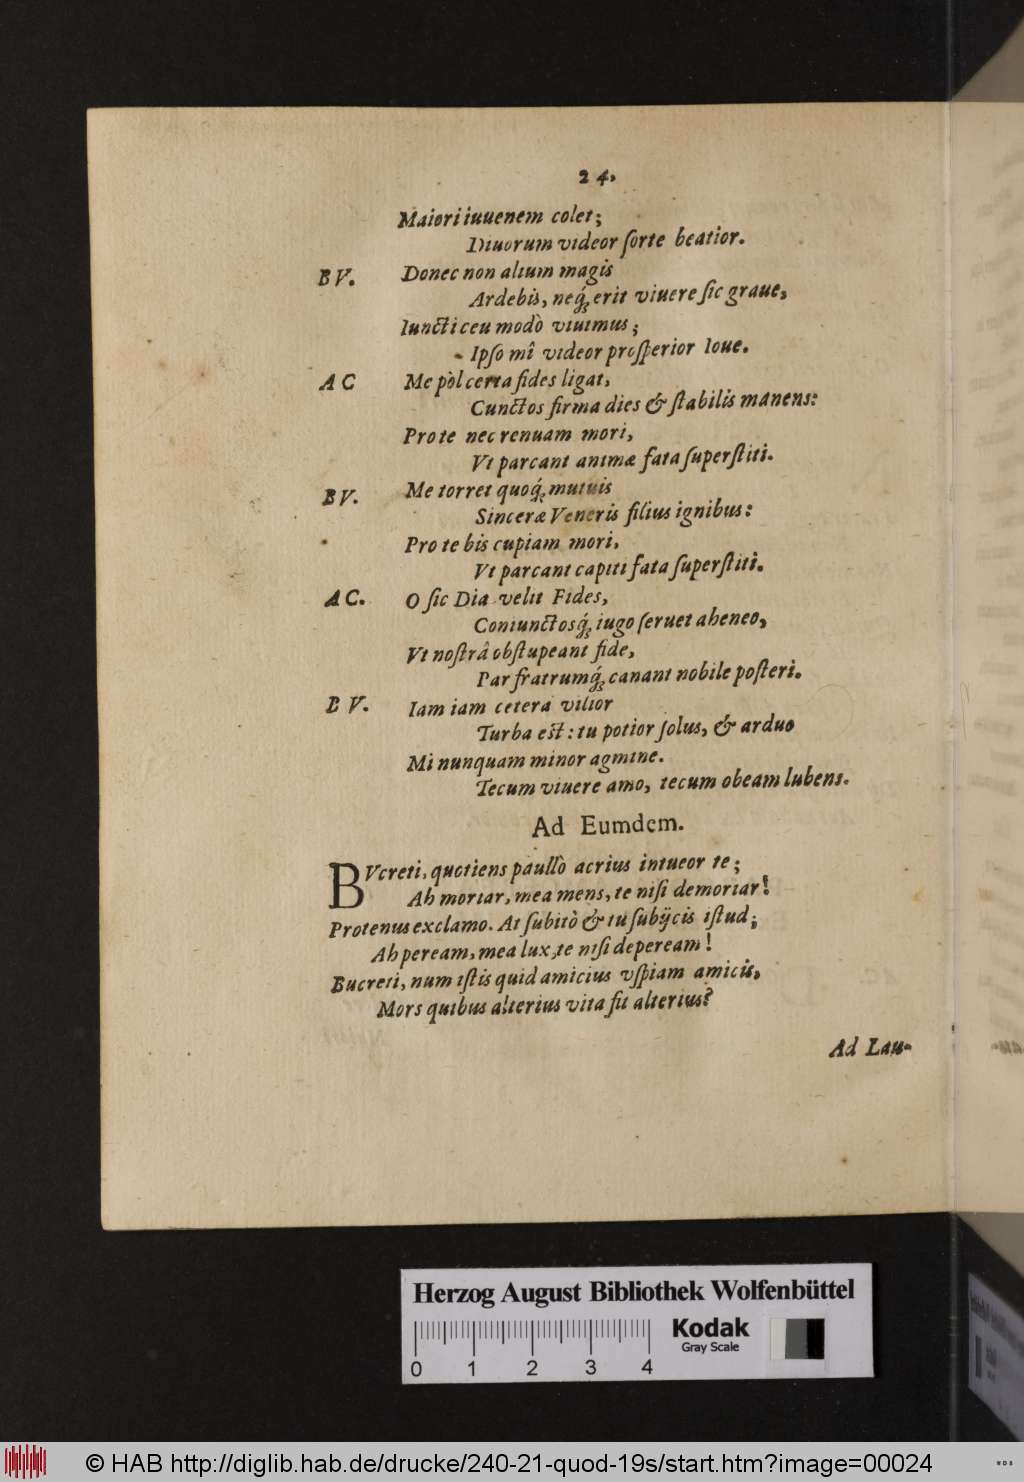 24.
Maiori iuuenem colet;
Diuorum videor ſorte beatior.
BV. Donec non alium magis
Ardebis, neq́; erit viuere ſic graue,
Iuncti ceu modò viuimus;
Ipſo mî videor proſperior Ioue.
AC Me pòl certa fides ligat,
Cunctos firma dies & ſtabilis manens:
Pro te nec renuam mori,
Vt parcant animæ fata ſuperſtiti.
BV. Me torret quoq́; mutuis
Sinceræ Veneris filius ignibus:
Pro te bis cupiam mori,
Vt parcant capiti fata ſuperſtiti.
AC. O ſic Dia velit Fides,
Coniunctosq́; iugo ſeruet aheneo,
Vt noſtrâ obſtupeant fide,
Par fratrumq́; canant nobile poſteri.
BV. Iam iam cetera vilior
Turba eſt: tu potior ſolus, & arduo
Mi nunquam minor agmine.
Tecum viuere amo, tecum obeam lubens.
Ad Eumdem.
BVcreti, quotiens paullò acrius intueor te;
Ah moriar, mea mens, te niſi demoriar!
Protenus exclamo. At ſubitò & tu ſubijcis iſtud;
Ah peream, mea lux, te niſi depeream!
Bucreti, num iſtis quid amicius vſpiam amicis,
Mors quibus alterius vita fit alterius?
Ad Lau-
Herzog August Bibliothek Wolfenbüttel
Kodak
Gray Scale
0 1 2 3 4
© HAB http://diglib.hab.de/drucke/240-21-quod-19s/start.htm?image=00024